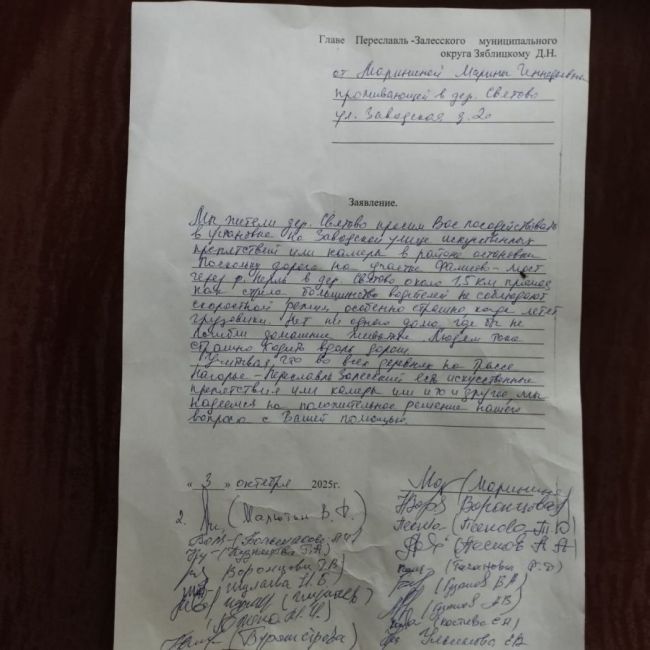 Главе Переславль -Залесского муниципального
округа Зяблицкому Д.Н.
от Марининой Марины
проживающей в дер. Святово
ул. Заводская д. 2а
Заявление.
Мы жители дер. Святово просим Вас посодействовать
в установке на Заводской улице искуственных
препятствий или камеры в районе остановки
Поскольку дорога на участке - мост
через р. Нерль в дер. Святово около 1.5 км прямая
как стрела большинство водителей не соблюдают
скоростной режим, особенно страшно, когда летят
грузовики. Нет ни одного дома, где бы не
погибли домашние животные. Людям тоже
страшно ходить вдоль дороги.
Учитывая, что во всех деревнях на трассе
Нагорье - Переславль Залесский есть искуственные
препятствия или камеры или и то и другое, мы
надеемся на положительное решение нашего
вопроса с Вашей помощью.
« 3 » октября 2025г.
(Маринина)
2. (Малютин В.Ф.)
(Воронцова)
(Песков А.А)
Воронцова
(Бурмистрова)